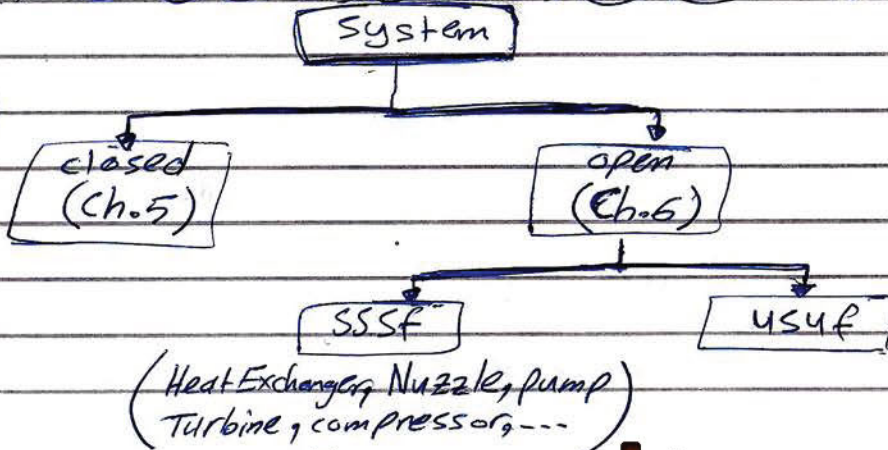 System
closed open
(Ch.5) (Ch.6)
SSSF USUF
(Heat Exchanger, Nuzzle, pump
Turbine, compressor, ---)